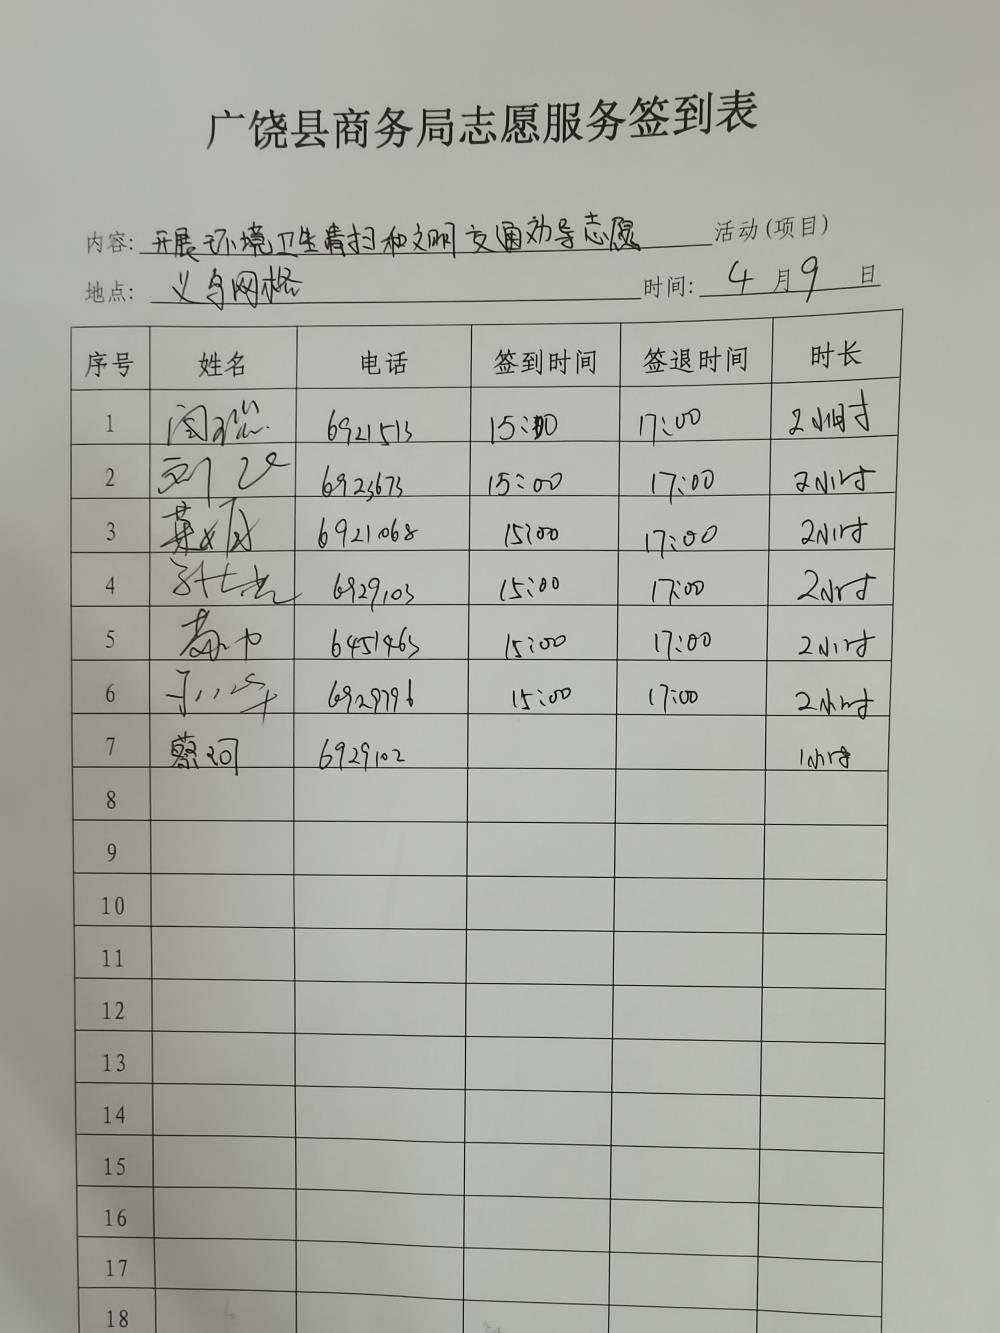 广饶县商务局志愿服务签到表
内容: 开展环境卫生清扫和文明交通劝导志愿 活动(项目)
地点: 义乌网格 时间: 4月9日
序号 姓名 电话 签到时间 签退时间 时长
1 闫瑞 6921513 15:00 17:00 2小时
2 刘 6923673 15:00 17:00 2小时
3 6921068 15:00 17:00 2小时
4 6929103 15:00 17:00 2小时
5 6451463 15:00 17:00 2小时
6 6929796 15:00 17:00 2小时
7 蔡珂 6929102 1小时
8
9
10
11
12
13
14
15
16
17
18